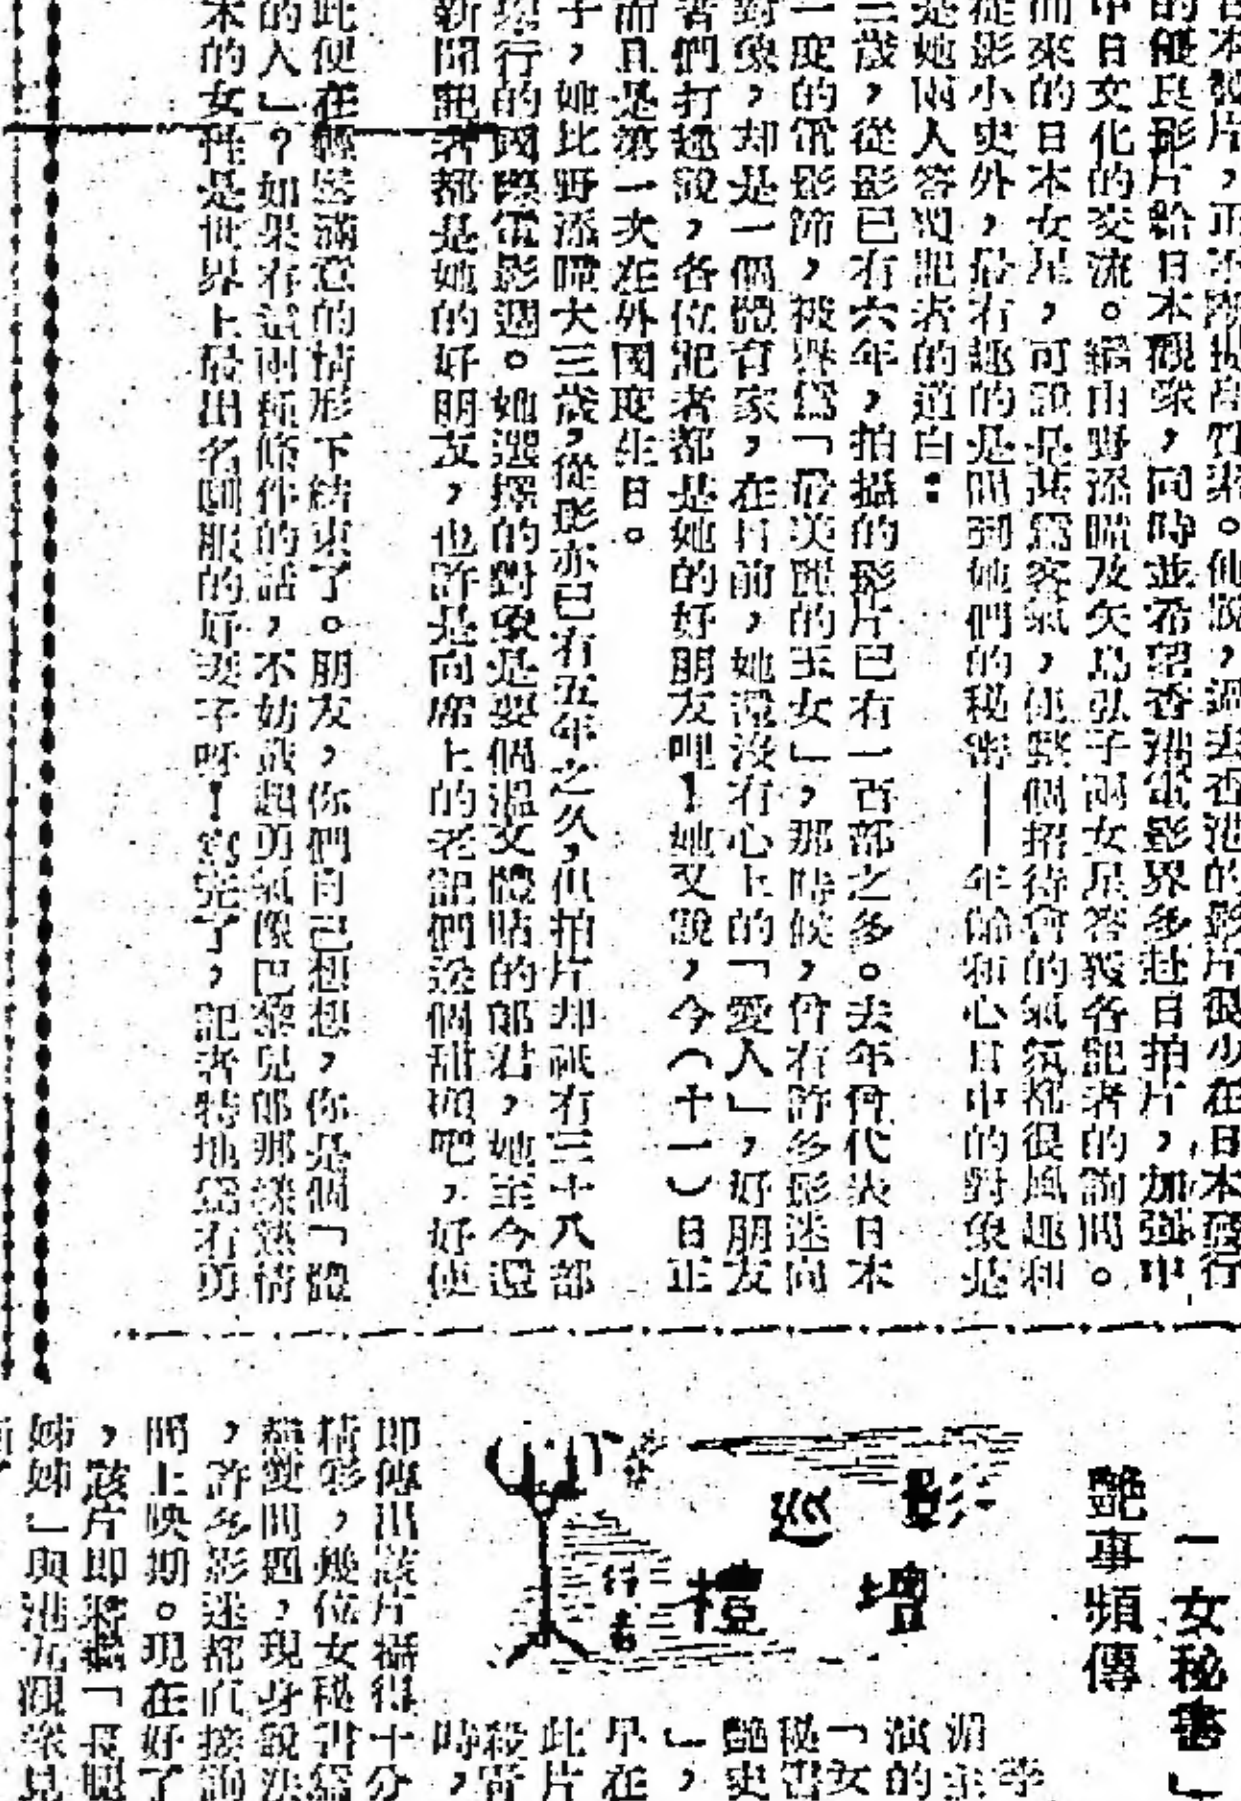 日本製片，正
的優良影片給日本觀眾，同時並希望香港電影界多赴日拍片，加強中
中日文化的交流。繼由野添瞳及矢島弘子兩女星答覆各記者的詢問。
而來的日本女星，可說是甚為客氣，使整個招待會的氣氛都很風趣和
從影小史外，最有趣的是問到她們的秘密——年齡和心目中的對象是
是她兩人答覆記者的道白：
三歲，從影已有六年，拍攝的影片已有一百部之多。去年曾代表日本
一度的電影節，被譽為「最美麗的玉女」，那時候，曾有許多影迷向
對象，却是一個體育家，在目前，她還沒有心上的「愛人」，好朋友
者們打趣說，各位記者都是她的好朋友哩！她又說，今（十一）日正
而且是第一次在外國度生日。
子，她比野添瞳大三歲，從影亦已有五年之久，但拍片却祇有三十八部
舉行的國際電影週。她選擇的對象是要個溫文體貼的郎君，她至今還
新聞記者都是她的好朋友，也許是向席上的老記們送個甜頭吧，好使
此便在輕鬆滿意的情形下結束了。朋友，你們自己想想，你是個「體
的人」？如果有這兩種條件的話，不妨鼓起勇氣像巴黎兒郎那樣熱情
本的女性是世界上最出名馴服的好妻子呀！寫完了，記者特地為有勇
「女秘書」
艷事頻傳
影壇巡禮
行者
湄主
演的
「女
秘書
艷史
」，
早在
此片
殺青
時，
即傳出該片攝得十分
精彩，幾位女秘書為
戀愛問題，現身說法
，許多影迷都直接詢
問上映期。現在好了
，該片即將繼「長腿
姊姊」與港九觀眾見